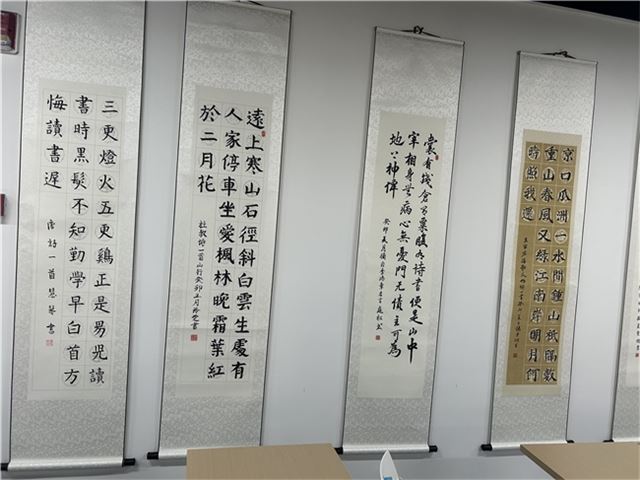 三更燈火五更鷄正是男兒讀
書時黑髮不知勤學早白首方
悔讀書遲
唐詩一首慧琴書
遠上寒山石徑斜白雲生處有
人家停車坐愛楓林晚霜葉紅
於二月花
杜牧詩一首山行癸卯五月
囊有錢倉有粟腹有詩書便是山中
宰相身無病心無憂門无債主可為
地上神僊
癸卯夏月
京口瓜洲一水間鍾山祇隔數
重山春風又綠江南岸明月何
時照我還